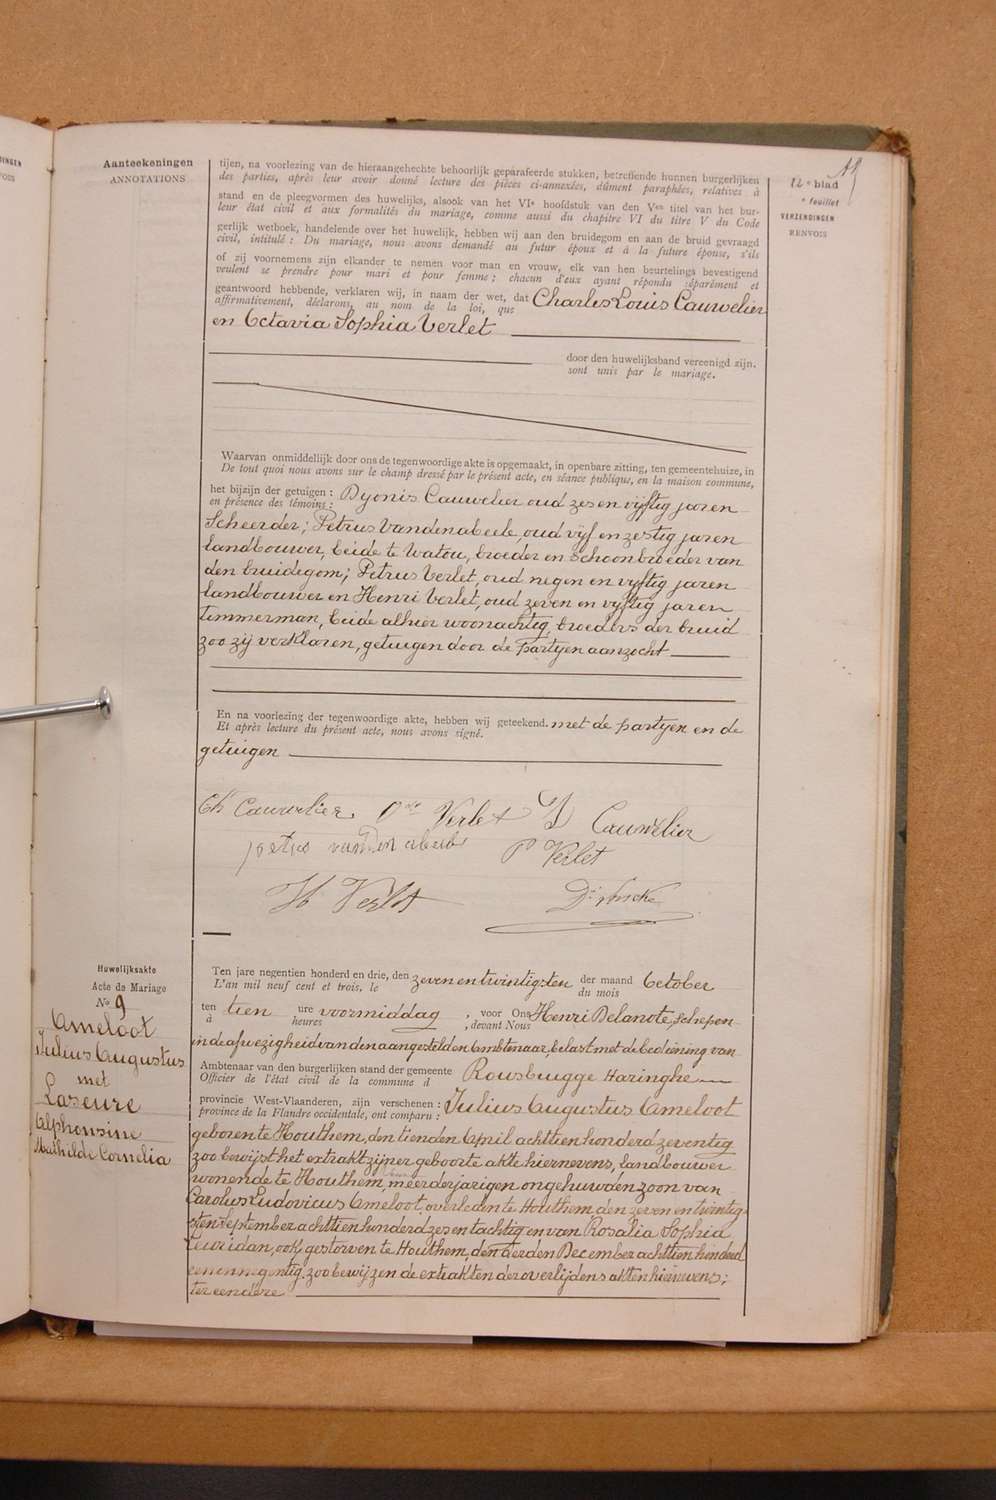 Aanteekeningen
ANNOTATIONS
12e blad
e feuillet
VERZENDINGEN
RENVOIS
tijen, na voorlezing van de hieraangehechte behoorlijk geparafeerde stukken, betreffende hunnen burgerlijken
des parties, après leur avoir donné lecture des pièces ci-annexées, dûment paraphées, relatives à
stand en de pleegvormen des huwelijks, alsook van het VIe hoofdstuk van den Ven titel van het bur-
leur état civil et aux formalités du mariage, comme aussi du chapitre VI du titre V du Code
gerlijk wetboek, handelende over het huwelijk, hebben wij aan den bruidegom en aan de bruid gevraagd
civil, intitulé : Du mariage, nous avons demandé au futur époux et à la future épouse, s'ils
of zij voornemens zijn elkander te nemen voor man en vrouw, elk van hen beurtelings bevestigend
veulent se prendre pour mari et pour femme ; chacun d'eux ayant répondu séparément et
geantwoord hebbende, verklaren wij, in naam der wet, dat Charles Louis Cauwelier
affirmativement, déclarons, au nom de la loi, que
en Octavia Sophia Verlet
door den huwelijksband vereenigd zijn.
sont unis par le mariage.
Waarvan onmiddellijk door ons de tegenwoordige akte is opgemaakt, in openbare zitting, ten gemeentehuize, in
De tout quoi nous avons sur le champ dressé par le présent acte, en séance publique, en la maison commune,
het bijzijn der getuigen : Dyonis Cauwelier oud zes en vijftig jaren
en présence des témoins :
Scheerder; Petrus Vandenabeele, oud vijf en zestig jaren
landbouwer, beide te Watou, broeder en schoonbroeder van
den bruidegom; Petrus Verlet, oud negen en vijftig jaren
landbouwer en Henri Verlet, oud zeven en vijftig jaren
timmerman, beide alhier woonachtig, broeders der bruid
zoo zij verklaren, getuigen door de partijen aanzocht
En na voorlezing der tegenwoordige akte, hebben wij geteekend. met de partijen en de
Et après lecture du présent acte, nous avons signé.
getuigen
Ch Cauwelier Verlet D Cauwelier
petrus vanden abeele P Verlet
H Verlet
Huwelijksakte
Acte de Mariage
No 9
Ameloot
Julius Augustus
met
Laseure
Alphonsine
Mathilde Cornelia
Ten jare negentien honderd en drie, den zeven en twintigsten der maand October
L'an mil neuf cent et trois, le du mois
ten tien ure voormiddag , voor Ons Henri Delanote, schepen
à heures , devant Nous
in de afwezigheid van den aangestelden ambtenaar, belast met de bediening van
Ambtenaar van den burgerlijken stand der gemeente Rousbrugge Haringhe
Officier de l'état civil de la commune d
provincie West-Vlaanderen, zijn verschenen : Julius Augustus Ameloot
province de la Flandre occidentale, ont comparu :
geboren te Houthem, den tienden April achttien honderd zeventig
zoo bewijst het extrakt zijner geboorte akte hiernevens, landbouwer
wonende te Houthem, meerderjarigen ongehuwden zoon van
Carolus Ludovicus Ameloot, overleden te Houthem, den zeven en twintig-
sten September achttien honderd zes en tachtig en van Rosalia Sophia
Leuridan, ook gestorven te Houthem, den derden December achttien honderd
een en negentig, zoo bewijzen de extrakten der overlijdens akten hiernevens;
ter eendere